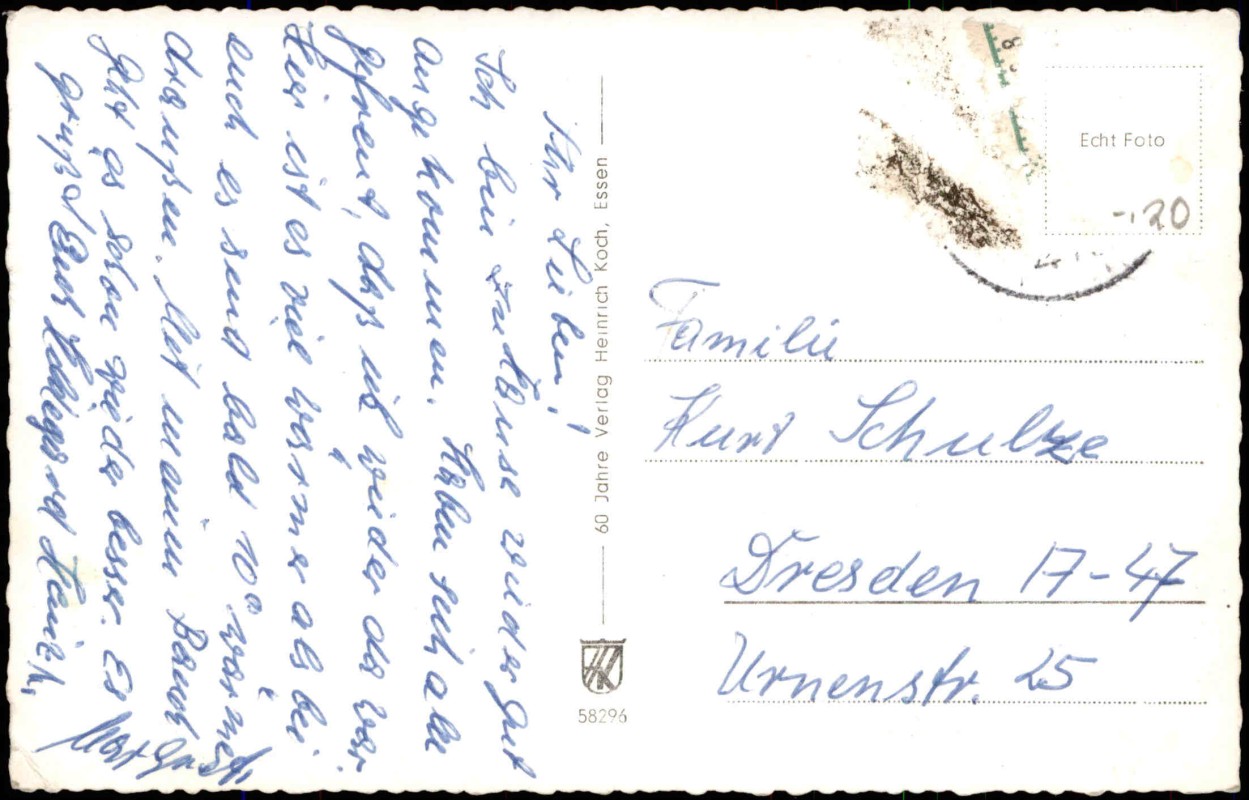 Ihr Lieben!
Ich bin zu Hause wieder gut
angekommen. Haben sich alle
gefreut, daß ich wieder da war.
Hier ist es viel wärmer als bei
euch es send bald 10° wärmer
draußen. Mit meinem Bauch
geht es schon wieder besser. Es
grüßt Euch
60 Jahre Verlag Heinrich Koch, Essen
58296
8
Echt Foto
-.20
Familie
Kurt Schulze
Dresden 17-47
Urnenstr. 25